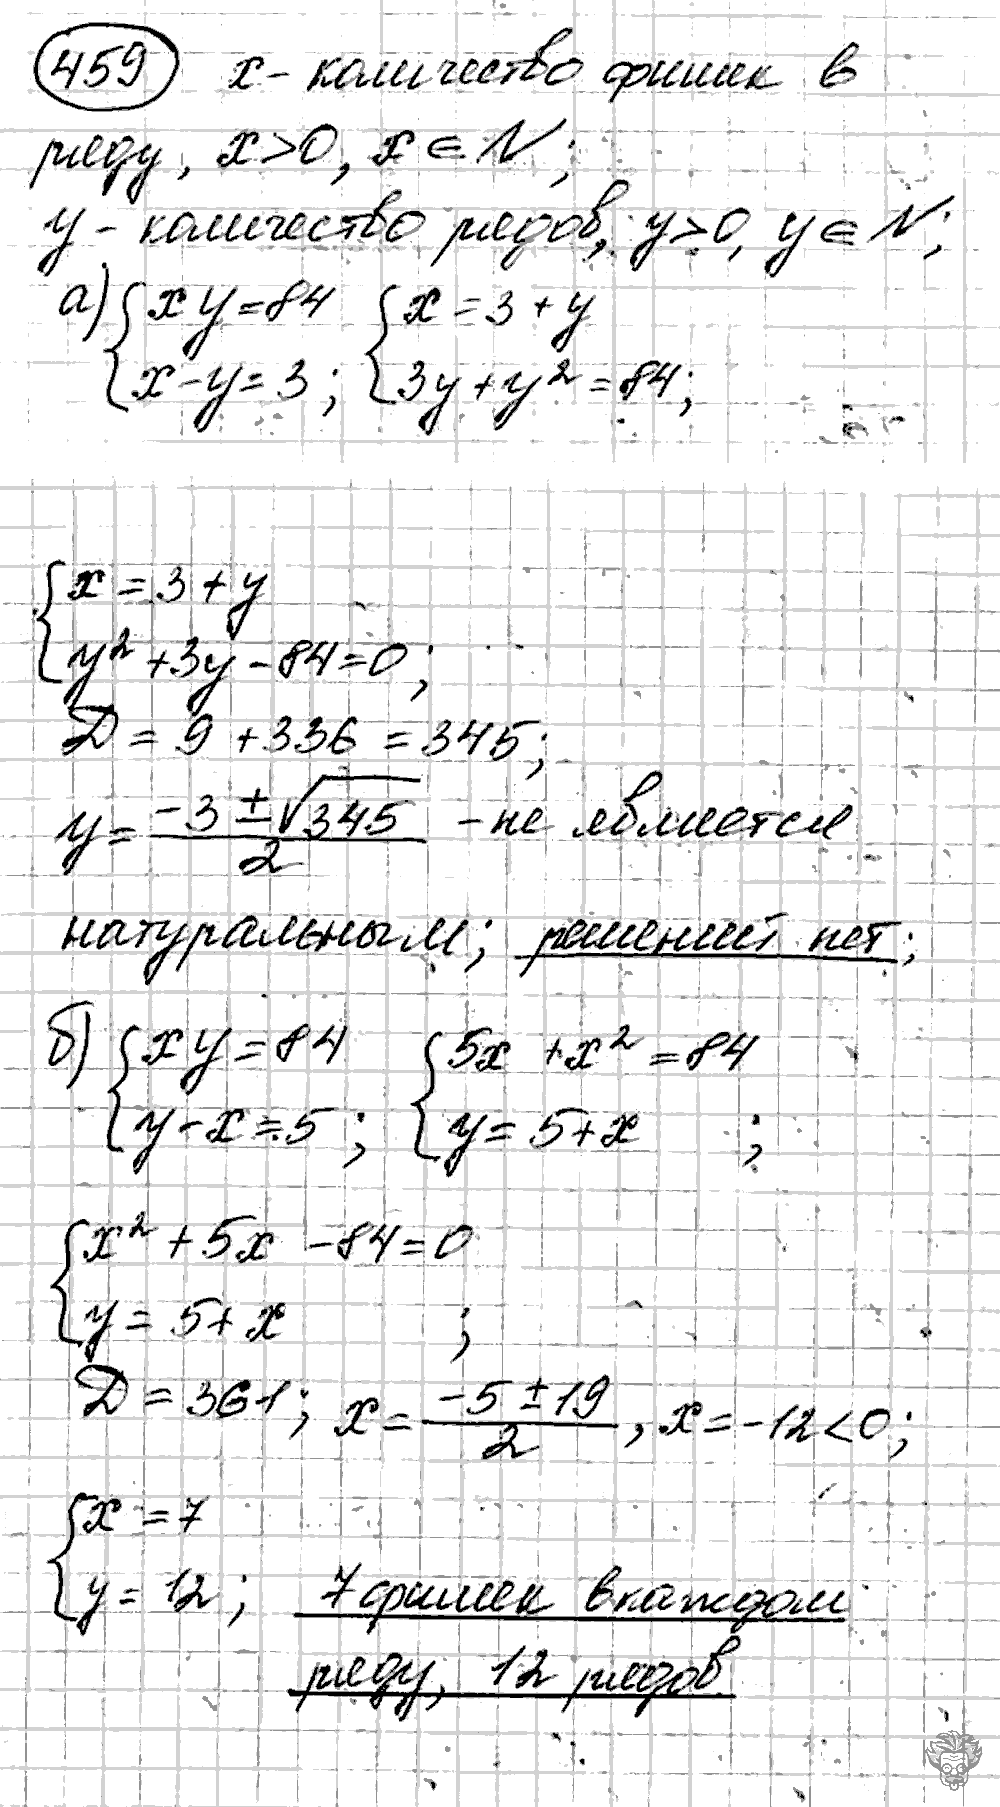 459 x - количество фишек в
ряду, x>0, x ∈ N;
y - количество рядов, y>0, y ∈ N;
а) { xy = 84 { x = 3 + y
x - y = 3; 3y + y² = 84;
{ x = 3 + y
y² + 3y - 84 = 0;
D = 9 + 336 = 345;
y = (-3 ± √345)/2 - не является
натуральным; решений нет;
б) { xy = 84 { 5x + x² = 84
y - x = 5; y = 5 + x ;
{ x² + 5x - 84 = 0
y = 5 + x ;
D = 361; x = (-5 ± 19)/2, x = -12 < 0;
{ x = 7
y = 12; 7 фишек в каждом
ряду, 12 рядов